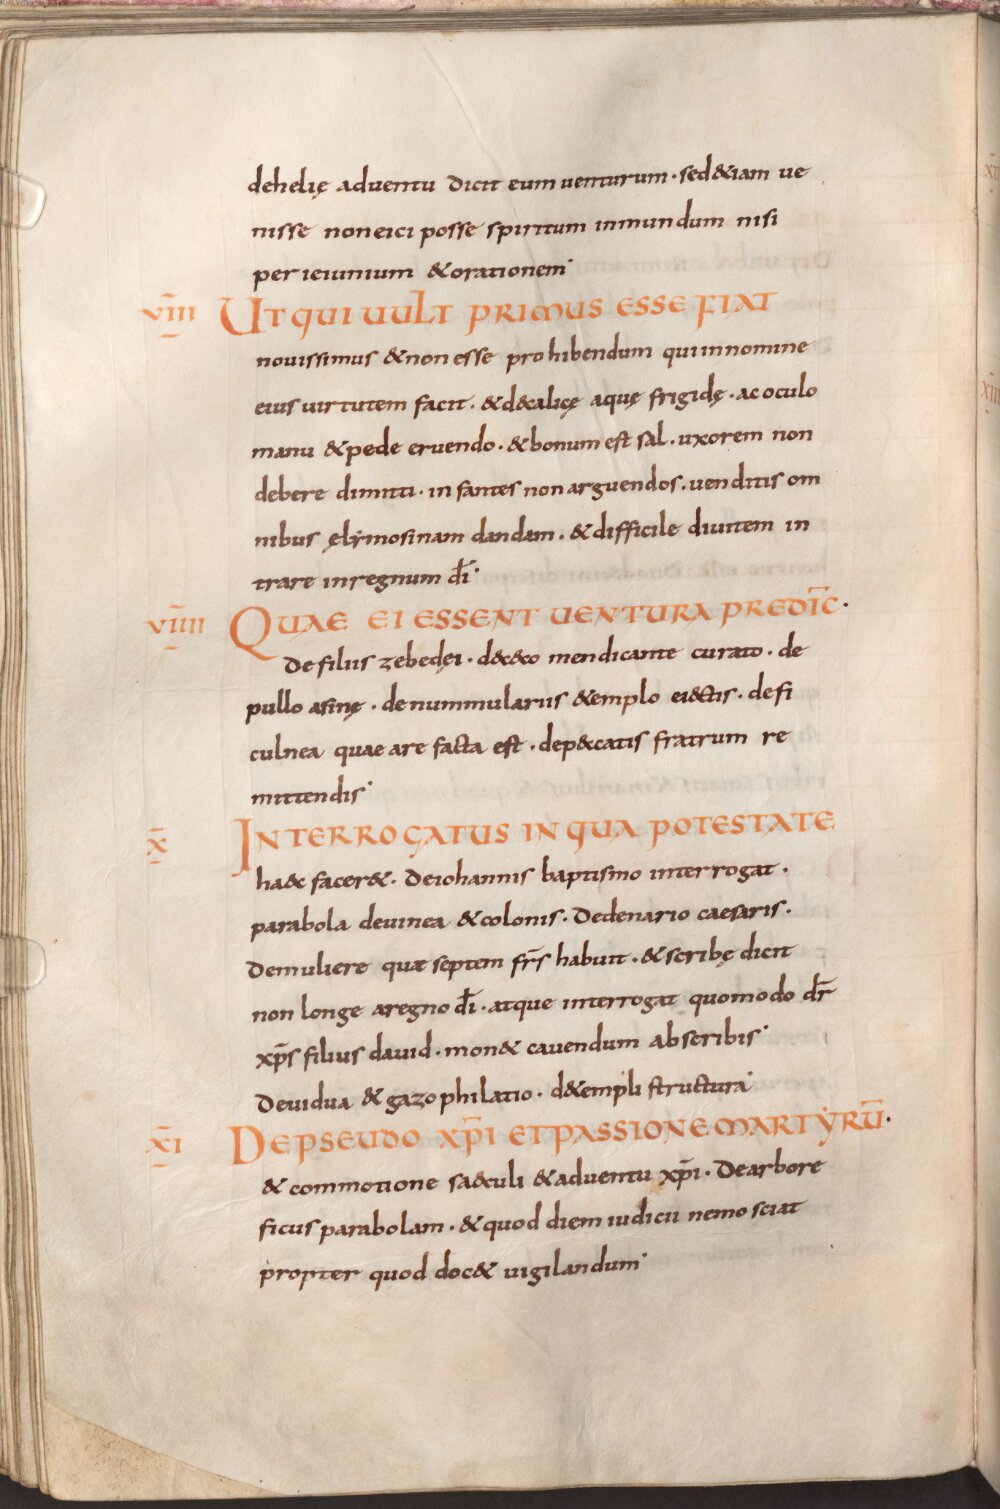 dehelię aduentu dicit eum uenturum · sed &iam ue
nisse non eici posse spiritum inmundum nisi
per ieiunium & orationem·
VIII UT QUI UULT PRIMUS ESSE FIAT
nouissimus & non esse prohibendum qui in nomine
eius uirtutem facit · & d& calicę aquę frigidę · ac oculo
manu & pede eruendo · & bonum est sal · uxorem non
debere dimitti · infantes non arguendos · uenditis om
nibus ęlẏmosinam dandam · & difficile diuitem in
trare in regnum dī·
VIIII QUAE EI ESSENT UENTURA PREDIC̄ ·
De filiis zebedęi · d& ceco mendicante curato · de
pullo asinę · de nummulariis & templo eiectis · de fi
culnea quae arefacta est · de p&catis fratrum re
mittendis·
X INTERROGATUS IN QUA POTESTATE
haec facer& · De iohannis baptismo interrogat ·
parabola de uinea & colonis · De denario caesaris ·
De muliere quae septem fr̄s habuit · & scribę dicit
non longe a regno dī · atque interrogat quomodo dr̄
xp̄s filius dauid · mon& cauendum ab scribis·
De uidua & gazophilatio · d& templi structura·
XI DE PSEUDO XP̄I ET PASSIONE MARTẎRŪ ·
& commotione saeculi & aduentu xp̄i · De arbore
ficus parabolam · & quod diem iudicii nemo sciat
propter quod doc& uigilandum·